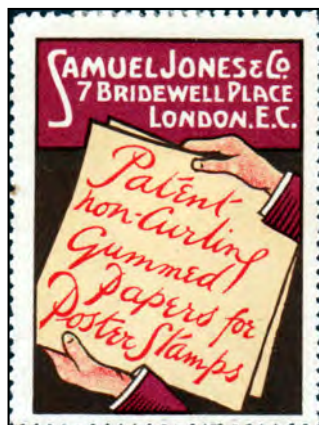 SAMUEL JONES & CO.
7 BRIDEWELL PLACE
LONDON. E.C.
Patent
non-Curling
Gummed
Papers for
Poster Stamps